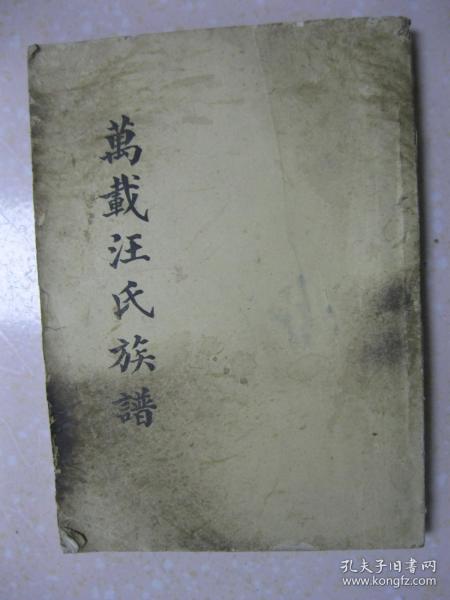 萬載汪氏族譜
孔夫子旧书网
www.kongfz.com